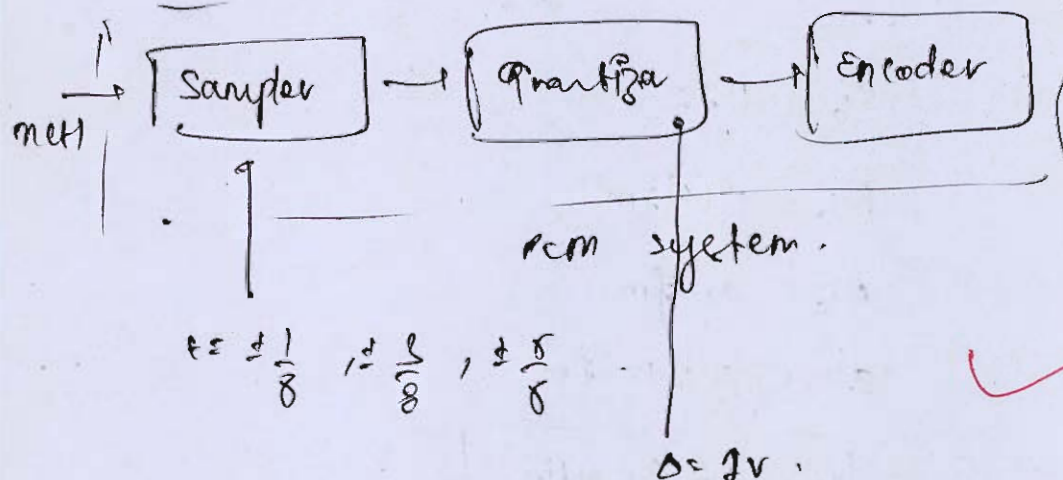 Sampler → Quantizer → Encoder
m(t)
PCM system.
t = ± 1/8 , ± 3/8 , ± 5/8 .
Δ = 1V .